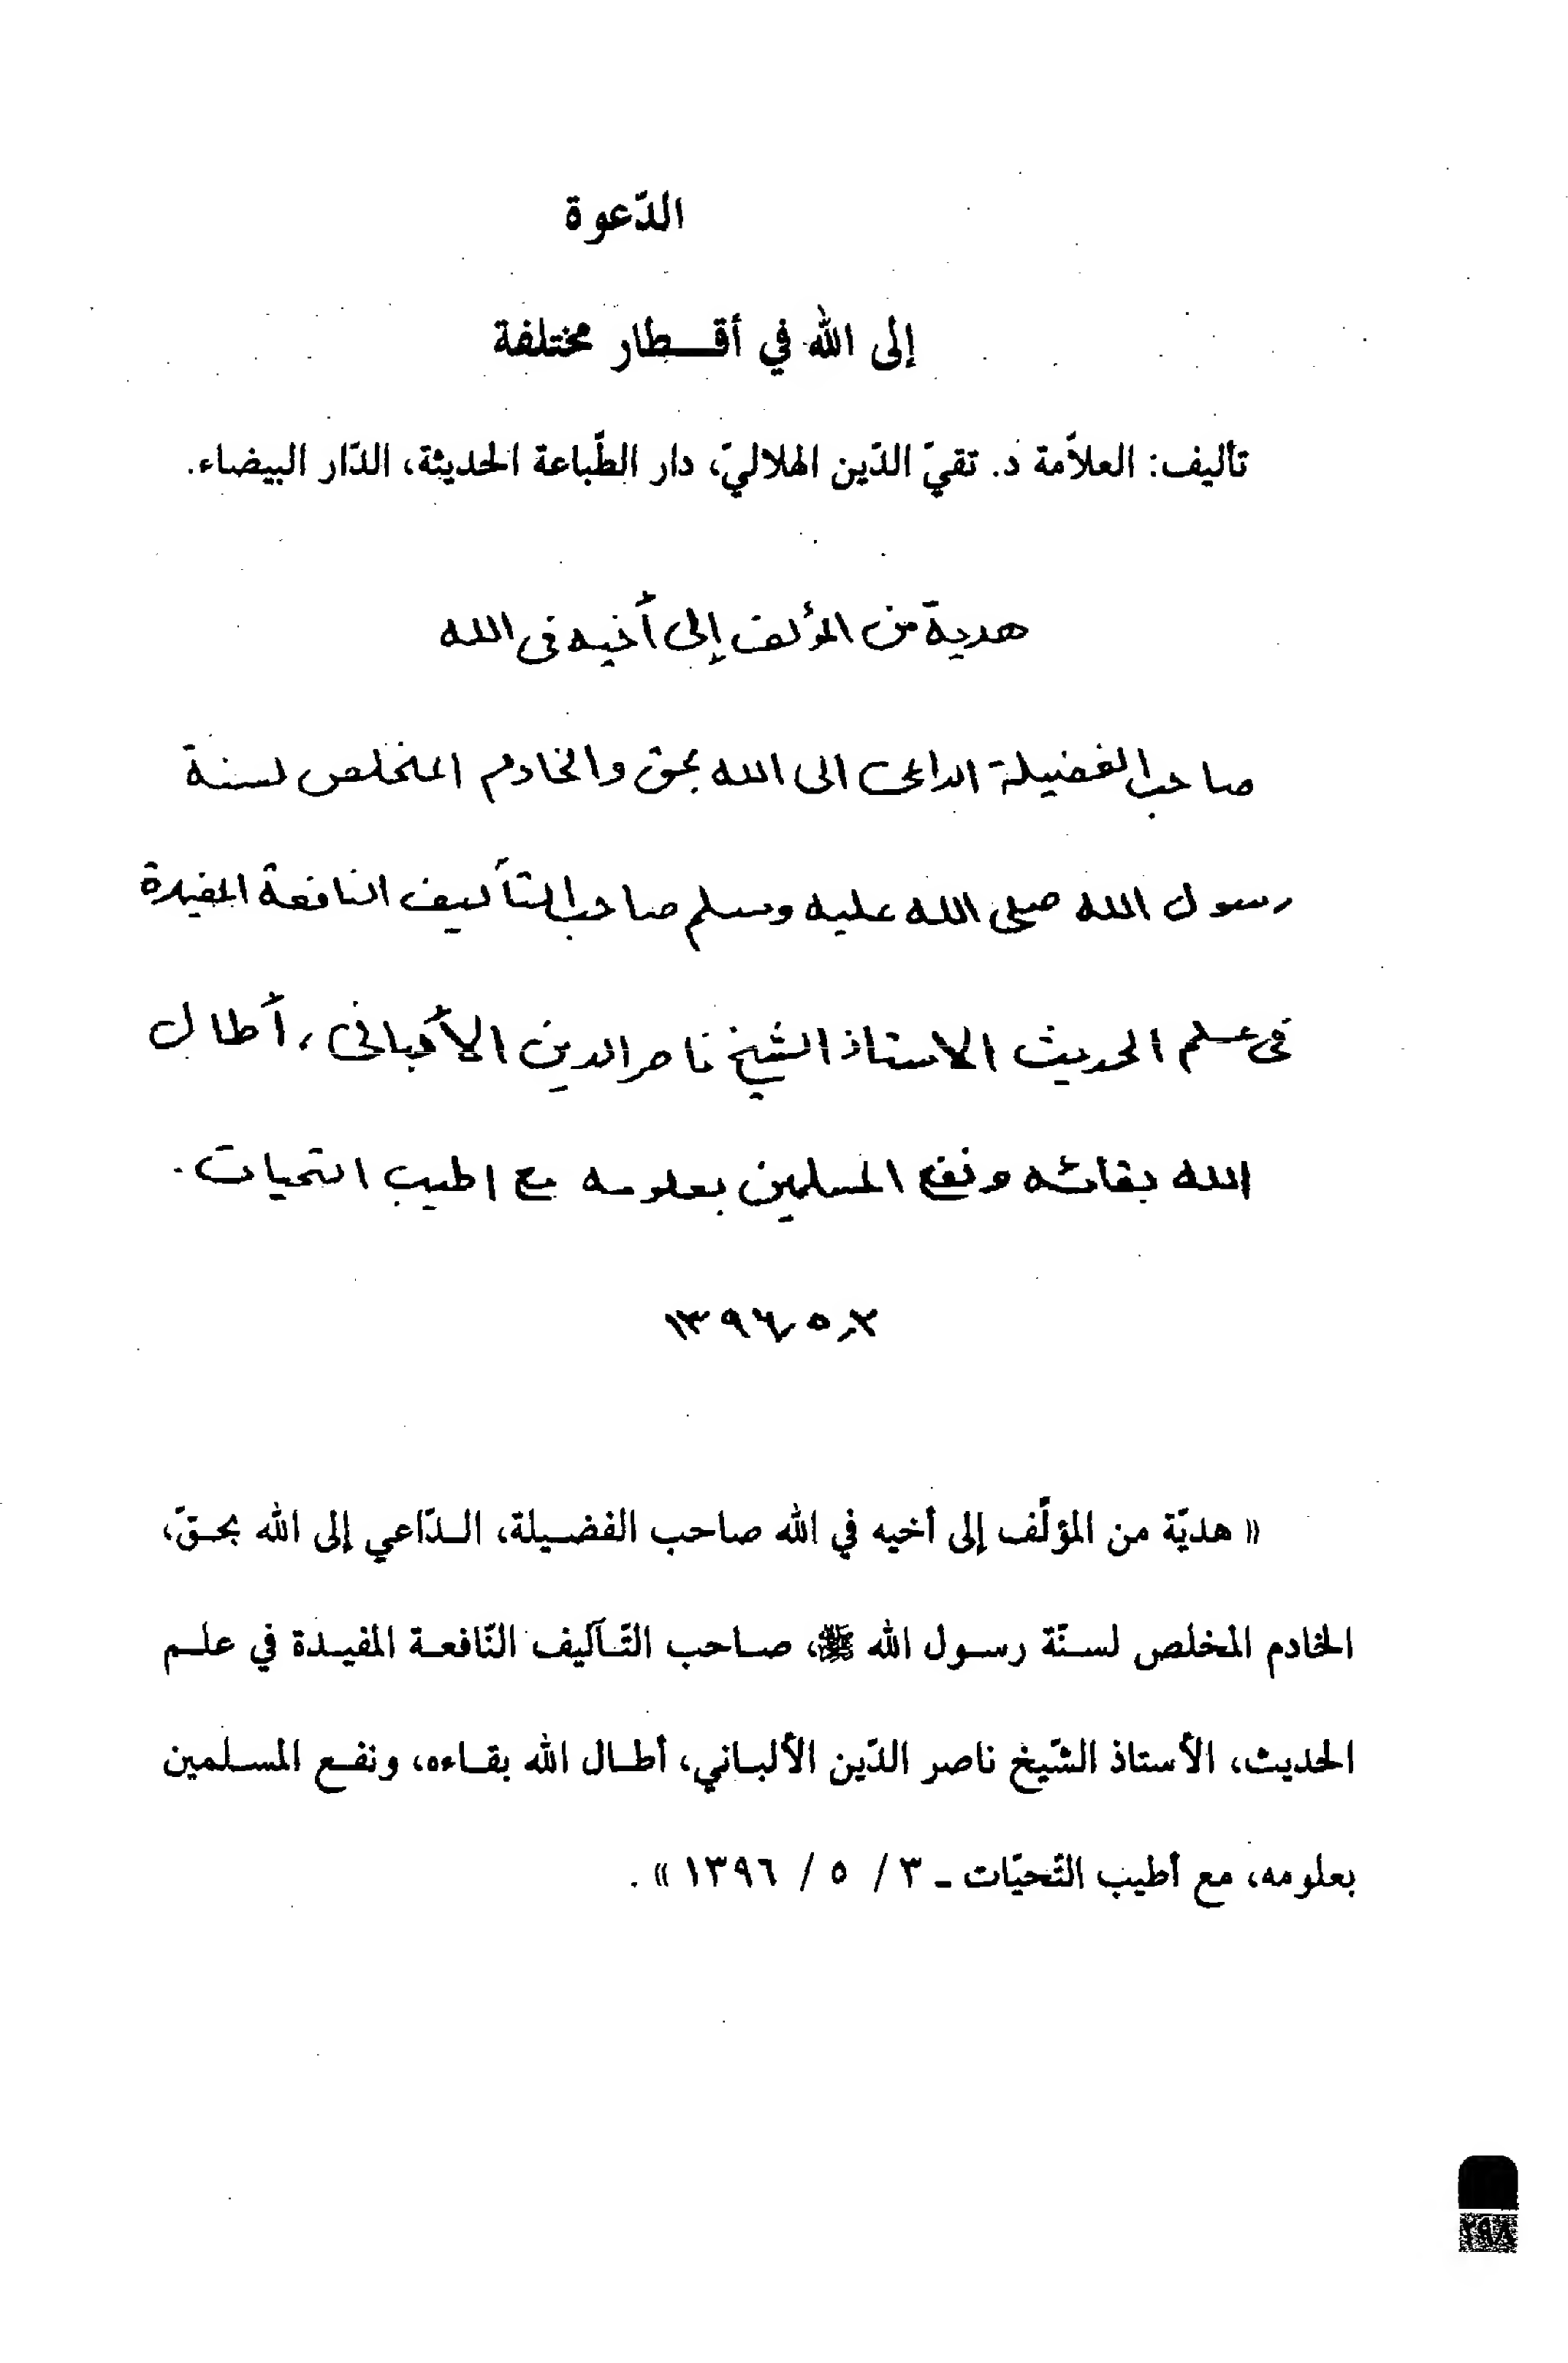 الدّعوة
إلى الله في أقـــطار مختلفة
تأليف: العلاّمة د. تقيّ الدّين الهلاليّ، دار الطّباعة الحديثة، الدّار البيضاء.
هدية من المؤلف إلى أخيه فى الله
صاحب الفضيلة الداعى الى الله بحق والخادم المخلص لسنة
رسول الله صلى الله عليه وسلم صاحب التآليف النافعة المفيدة
فى علم الحديث الاستاذ الشيخ ناصر الدين الألبانى، أطال
الله بقائه ونفع المسلمين بعلومه مع اطيب التحيات.
٣/٥/١٣٩٦
« هديّة من المؤلّف إلى أخيه في الله صاحب الفضـيلة، الـدّاعي إلى الله بحـقّ،
الخادم المخلص لسـنّة رسـول الله ﷺ، صـاحب التّـآليف النّافعـة المفيـدة في علـم
الحديث، الأستاذ الشّيخ ناصر الدّين الألبـاني، أطـال الله بقـاءه، ونفـع المسـلمين
بعلومه، مع أطيب التّحيّات ـ ٣/ ٥ / ١٣٩٦ » .
٢٩٨